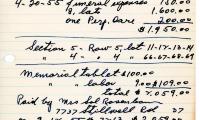 4-20-55 funeral expenses 150.00
8, lat 1,600.00
one Perp. Care 200.00
$1,950.00
Section 5 - Row 5, lat 11-17-13-14
" 4 - " 4 " 66-67-68-69
Memorial tablet $100.00
" labor 9.00 $109.00
total $2,059.00
Paid by Mrs Sol Rosenbau
7737 Stillwell Rd 37